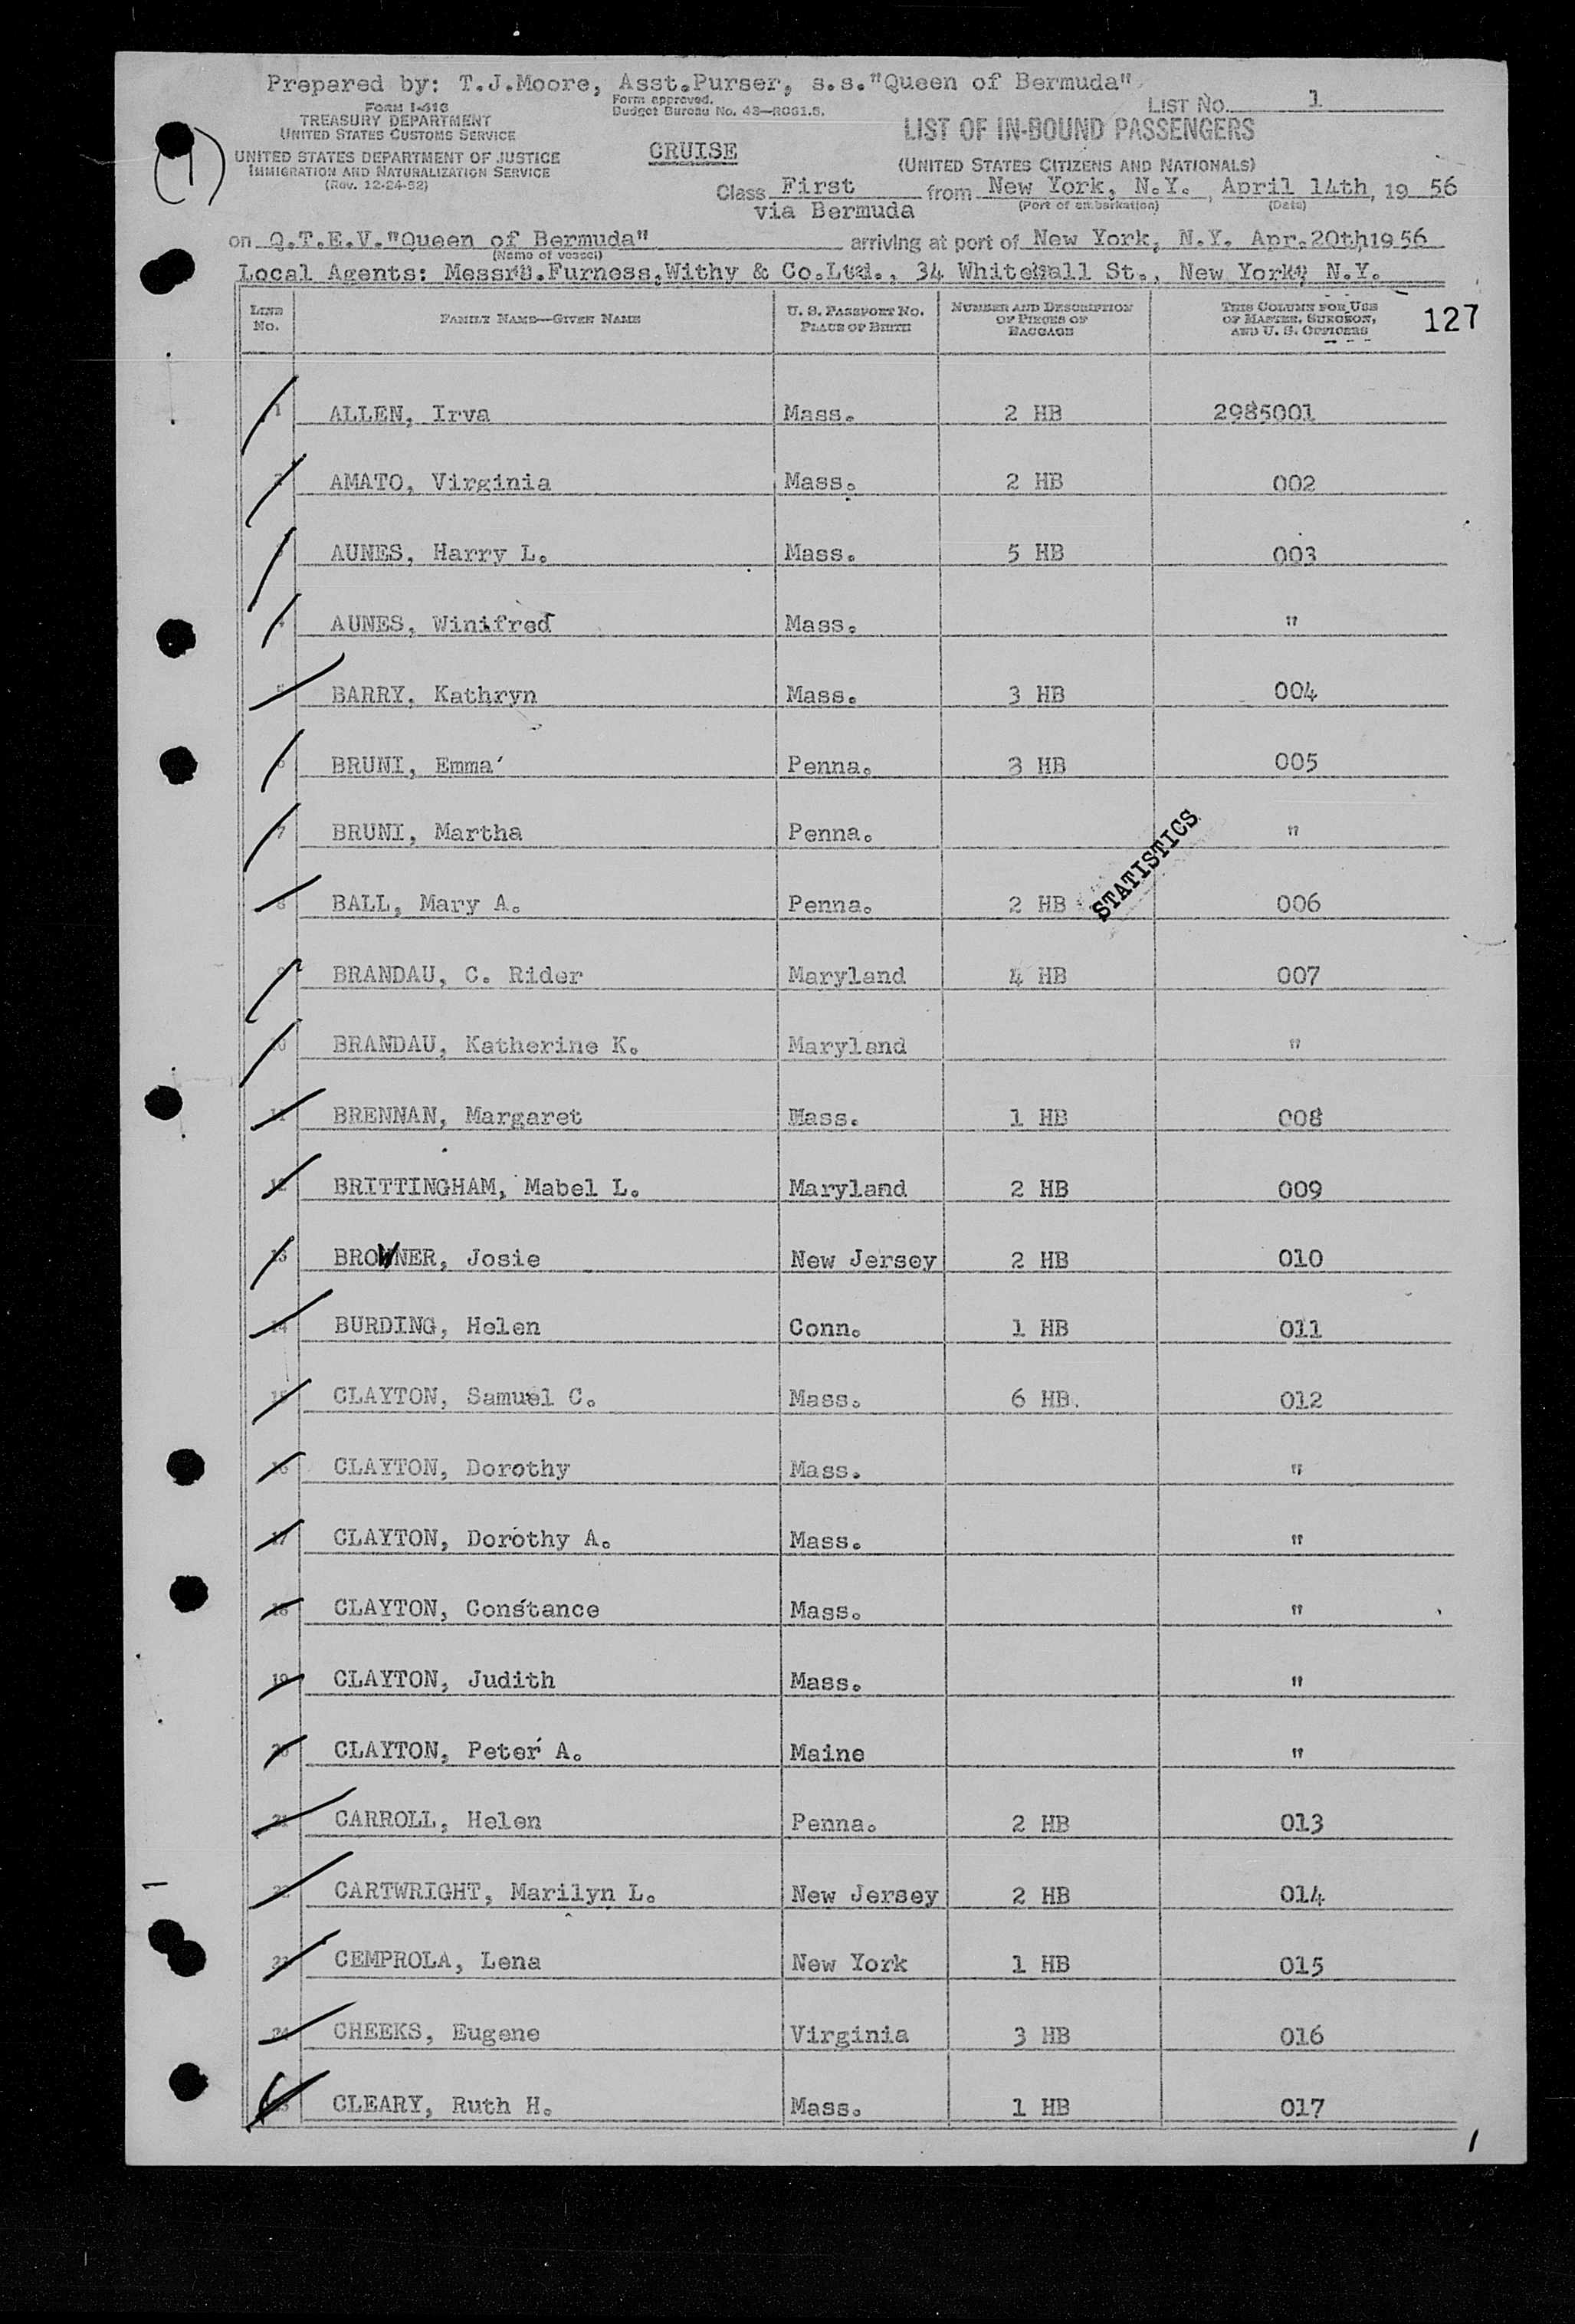 Prepared by: T.J.Moore, Asst.Purser, s.s."Queen of Bermuda"
FORM I-418
TREASURY DEPARTMENT
UNITED STATES CUSTOMS SERVICE
Form approved.
Budget Bureau No. 43—R061.5.
LIST No. 1
LIST OF IN-BOUND PASSENGERS
(1)
UNITED STATES DEPARTMENT OF JUSTICE
IMMIGRATION AND NATURALIZATION SERVICE
(Rev. 12-24-52)
CRUISE
(UNITED STATES CITIZENS AND NATIONALS)
Class First from New York, N.Y., April 14th, 19 56
(Port of embarkation) (Date)
via Bermuda
on Q.T.E.V."Queen of Bermuda" arriving at port of New York, N.Y. Apr.20th 1956
(Name of vessel)
Local Agents: Messrs.Furness,Withy & Co.Ltd., 34 Whitehall St., New York, N.Y.
LINE No. FAMILY NAME—GIVEN NAME U. S. PASSPORT No. PLACE OF BIRTH NUMBER AND DESCRIPTION OF PIECES OF BAGGAGE THIS COLUMN FOR USE OF MASTER, SURGEON, AND U. S. OFFICERS 127
1 ALLEN, Irva Mass. 2 HB 2985001
2 AMATO, Virginia Mass. 2 HB 002
3 AUNES, Harry L. Mass. 5 HB 003
4 AUNES, Winifred Mass. "
5 BARRY, Kathryn Mass. 3 HB 004
6 BRUNI, Emma Penna. 3 HB 005
7 BRUNI, Martha Penna. "
STATISTICS
8 BALL, Mary A. Penna. 2 HB 006
9 BRANDAU, C. Rider Maryland 4 HB 007
10 BRANDAU, Katherine K. Maryland "
11 BRENNAN, Margaret Mass. 1 HB 008
12 BRITTINGHAM, Mabel L. Maryland 2 HB 009
13 BROWNER, Josie New Jersey 2 HB 010
14 BURDING, Helen Conn. 1 HB 011
15 CLAYTON, Samuel C. Mass. 6 HB. 012
16 CLAYTON, Dorothy Mass. "
17 CLAYTON, Dorothy A. Mass. "
18 CLAYTON, Constance Mass. "
19 CLAYTON, Judith Mass. "
20 CLAYTON, Peter A. Maine "
21 CARROLL, Helen Penna. 2 HB 013
22 CARTWRIGHT, Marilyn L. New Jersey 2 HB 014
23 CEMPROLA, Lena New York 1 HB 015
24 CHEEKS, Eugene Virginia 3 HB 016
25 CLEARY, Ruth H. Mass. 1 HB 017
1